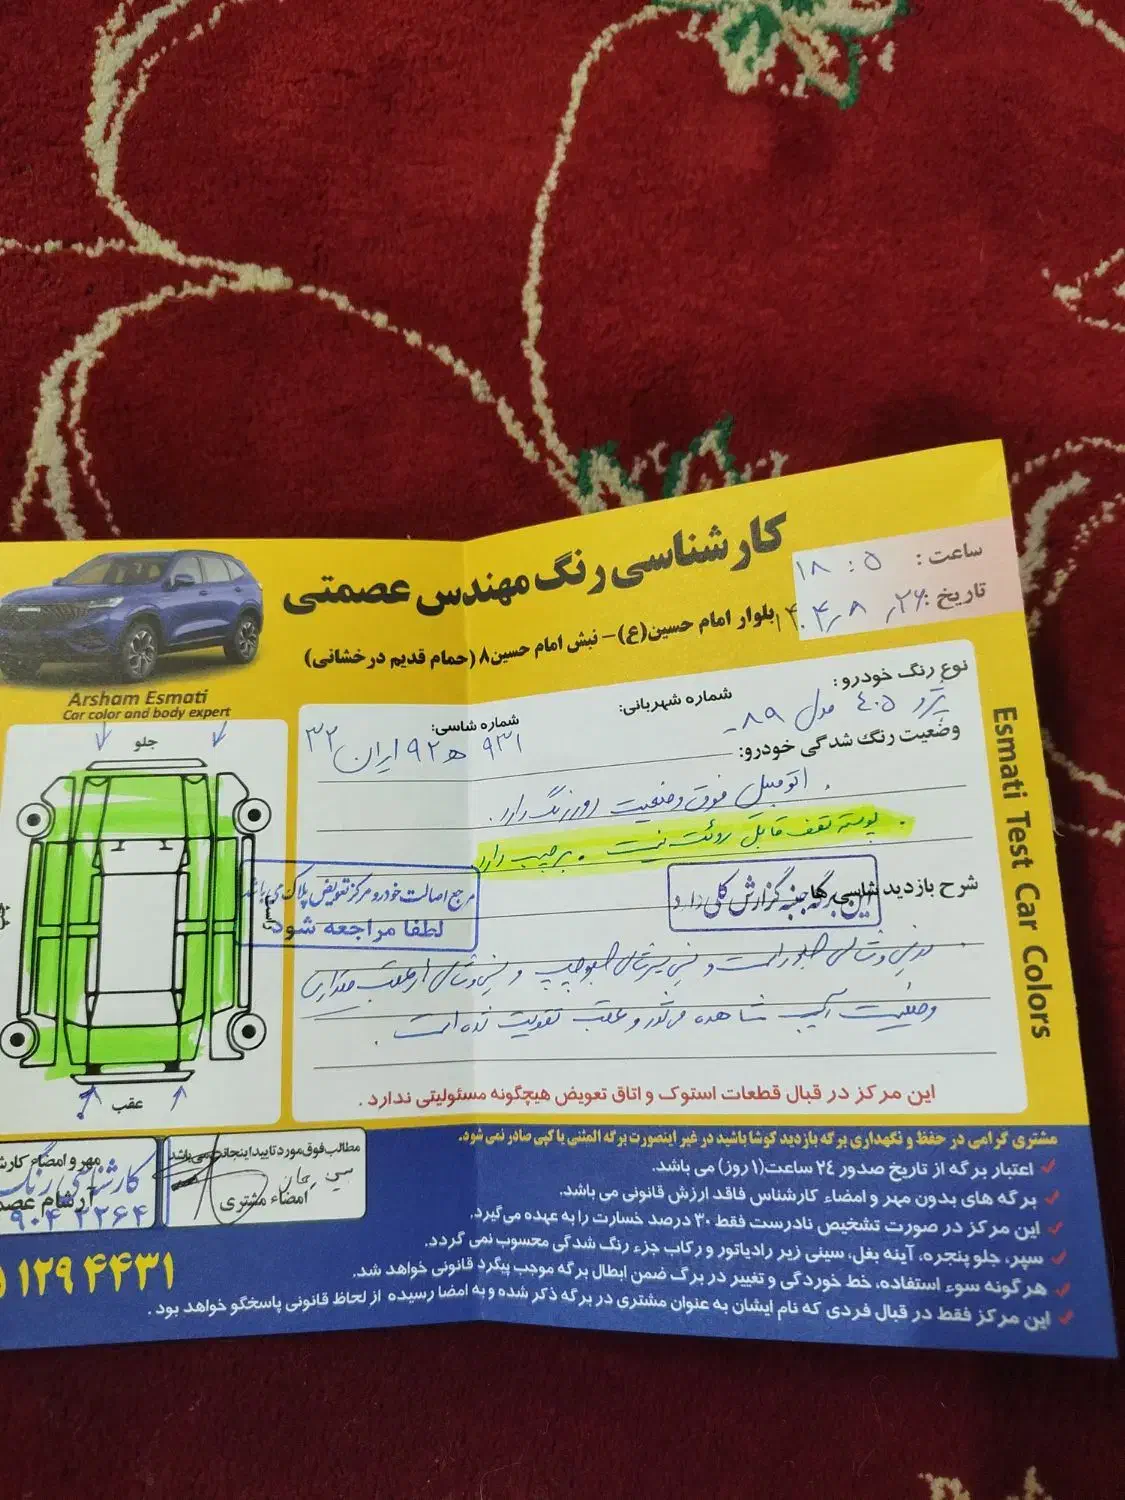 کارشناسی رنگ مهندس عصمتی
بلوار امام حسین(ع)- نبش امام حسین۸ (حمام قدیم درخشانی)
ساعت : ۱۸:۰۵
تاریخ : ۱۴۰۴٫۸٫۲۶
Arsham Esmati
Car color and body expert
Esmati Test Car Colors
نوع رنگ خودرو :
شماره شهربانی:
شماره شاسی:
پژو ۴۰۵ مدل ۸۹
۹۳۱ ه ۹۲ ایران ۳۲
وضعیت رنگ شدگی خودرو:
اتومبیل فوق وضعیت دور رنگ دارد.
پوسته سقف قابل روئت نیست . برچسب دارد
شرح بازدید شاسی ها
این برگه جنبه گزارش کلی دارد
مرجع اصالت خودرو مرکز تعویض پلاک می باشد
لطفا مراجعه شود
جلو
عقب
وضعیت آسیب مشاهده می شود و عقب تقویت شده است .
این مرکز در قبال قطعات استوک و اتاق تعویض هیچگونه مسئولیتی ندارد .
مشتری گرامی در حفظ و نگهداری برگه بازدید کوشا باشید در غیر اینصورت برگه المثنی یا کپی صادر نمی شود.
اعتبار برگه از تاریخ صدور ۲۴ ساعت(۱ روز) می باشد.
برگه های بدون مهر و امضاء کارشناس فاقد ارزش قانونی می باشد.
این مرکز در صورت تشخیص نادرست فقط ۳۰ درصد خسارت را به عهده می گیرد.
سپر، جلو پنجره، آینه بغل، سینی زیر رادیاتور و رکاب جزء رنگ شدگی محسوب نمی گردد.
هرگونه سوء استفاده، خط خوردگی و تغییر در برگ ضمن ابطال برگه موجب پیگرد قانونی خواهد شد.
این مرکز فقط در قبال فردی که نام ایشان به عنوان مشتری در برگه ذکر شده و به امضا رسیده از لحاظ قانونی پاسخگو خواهد بود .
مطالب فوق مورد تایید اینجانب می باشد
امضاء مشتری
مهر و امضاء
کارشناسی رنگ
آرشام
۹۰۴ ۲۲۶۴
۱۲۹۴۴۳۱